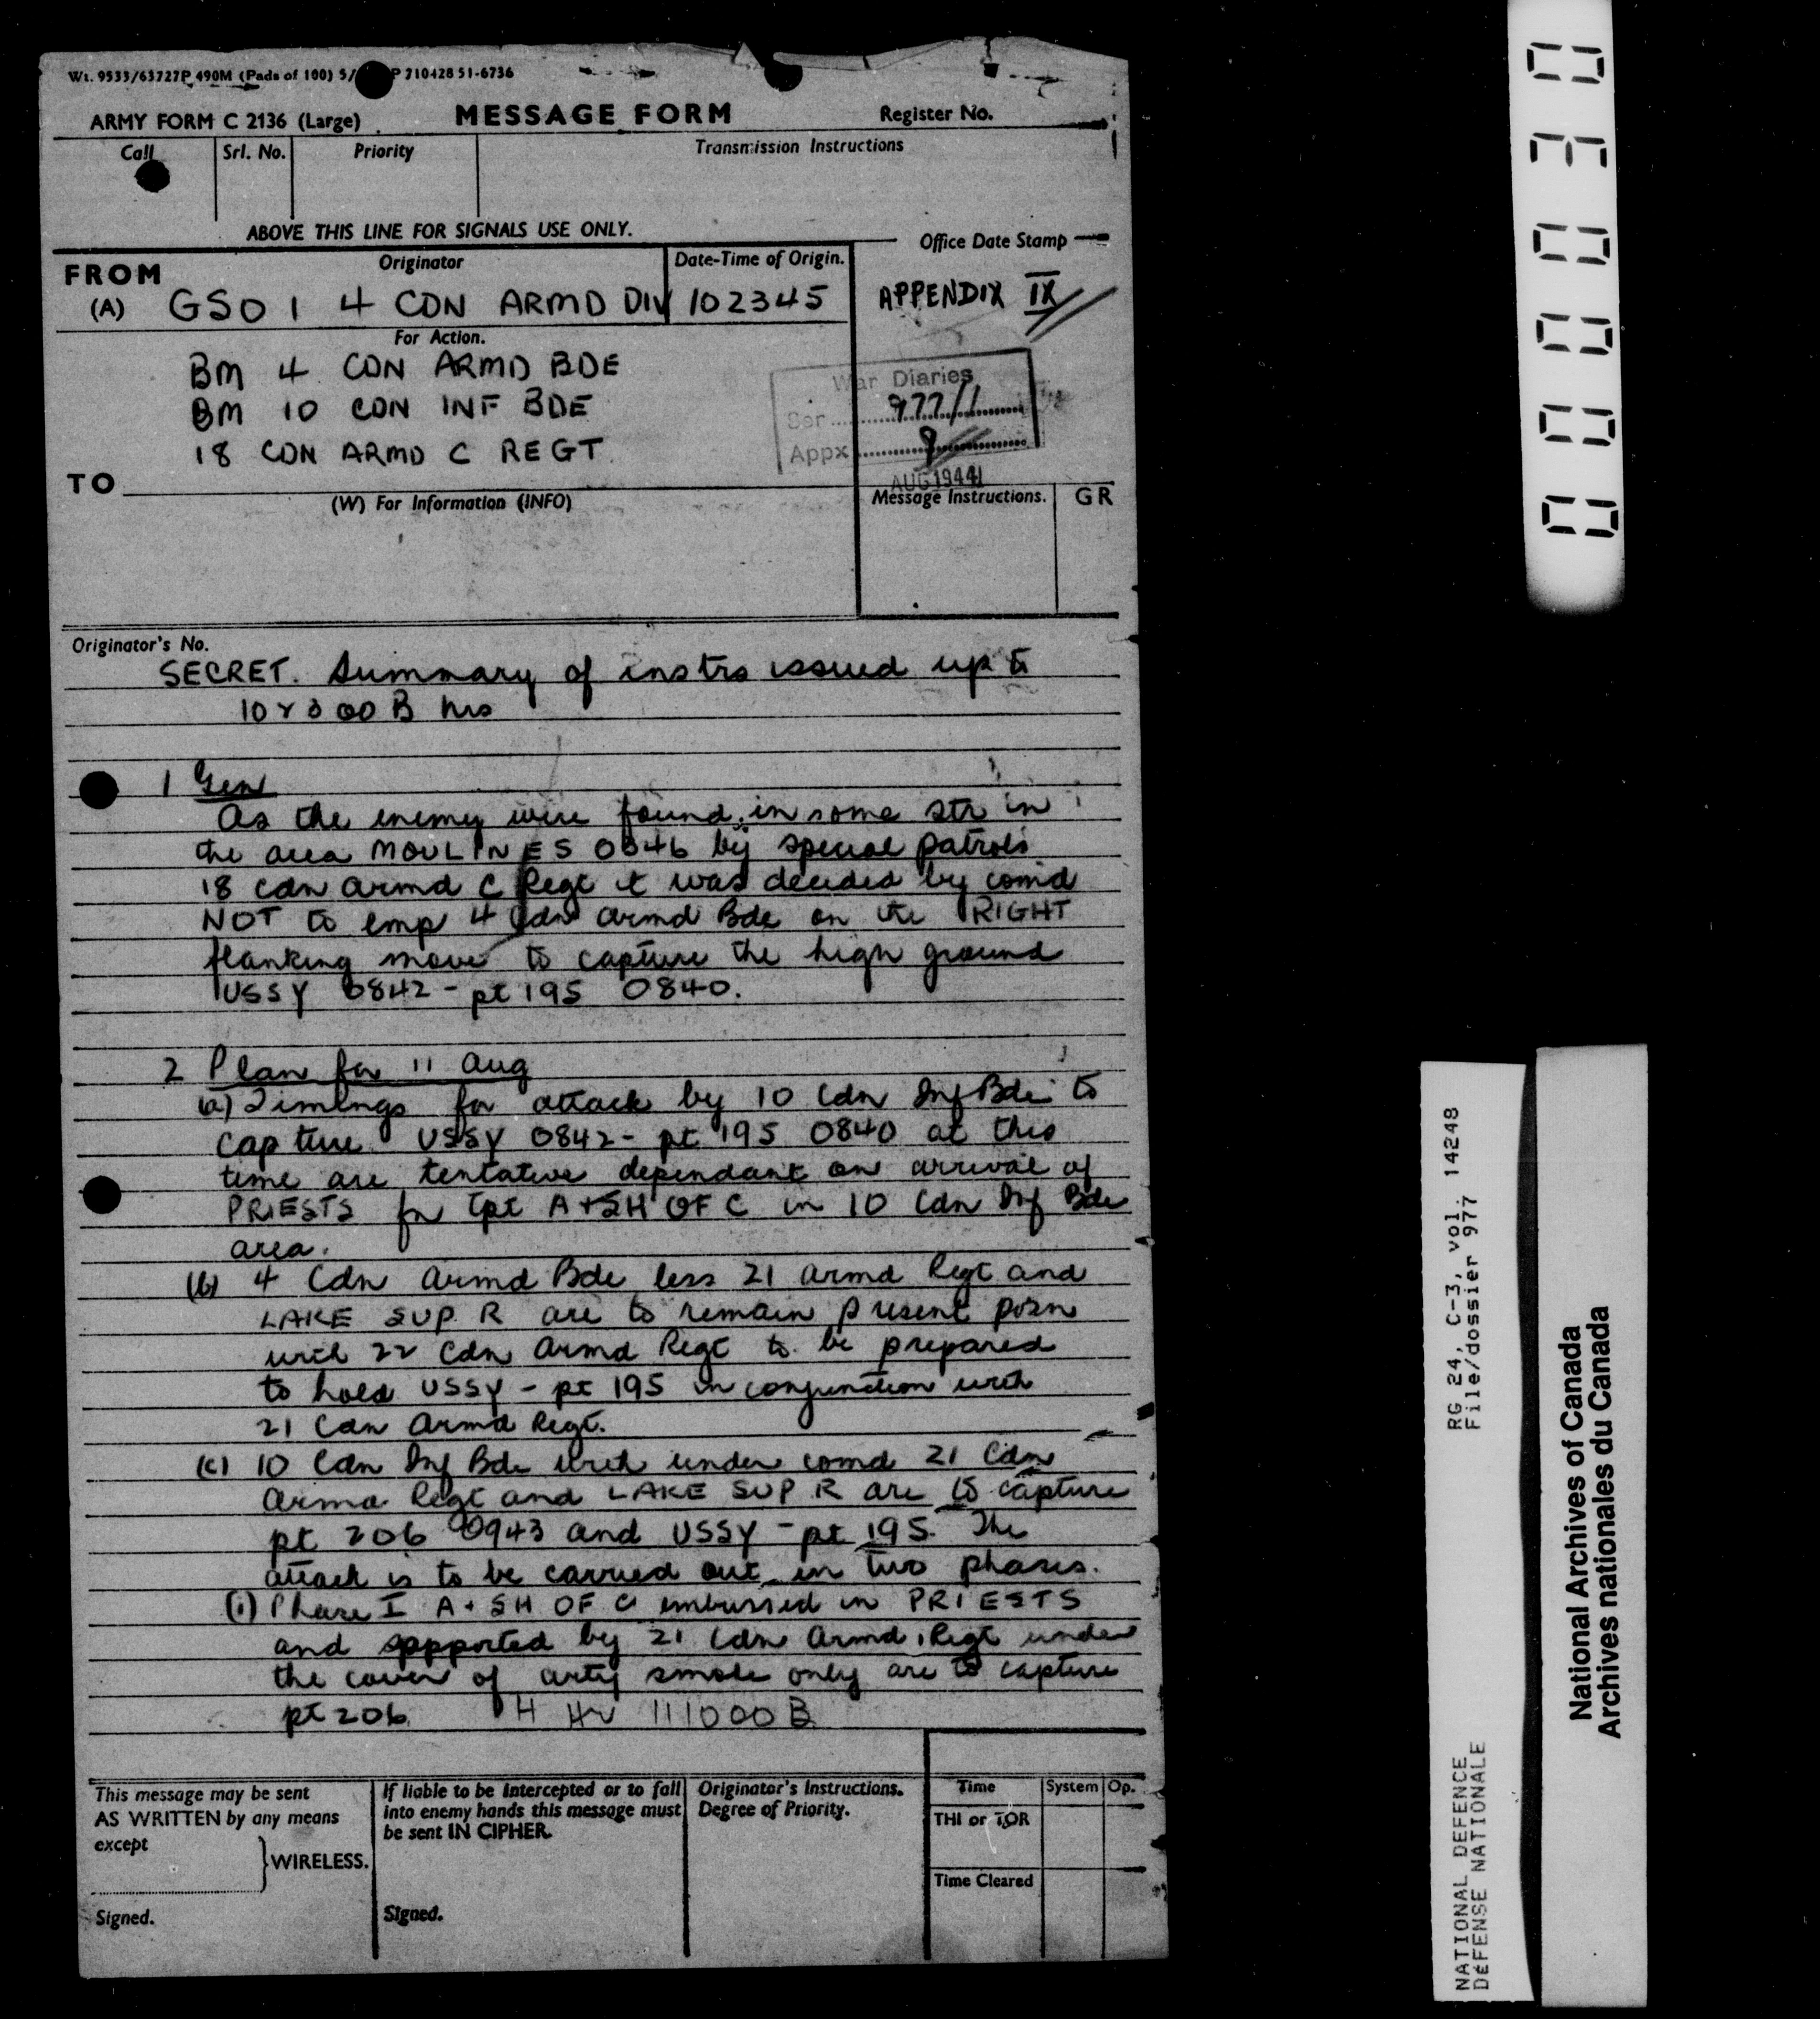 Wt. 9533/63727P 490M (Pads of 100) 5/ P 710428 51-6736
ARMY FORM C 2136 (Large)
MESSAGE FORM
Register No.
Call
Srl. No.
Priority
Transmission Instructions
ABOVE THIS LINE FOR SIGNALS USE ONLY.
Office Date Stamp
FROM
Originator
Date-Time of Origin.
(A) GSO 1 4 CDN ARMD DIV 102345
APPENDIX IX
For Action.
BM 4 CDN ARMD BDE
BM 10 CDN INF BDE
18 CDN ARMD C REGT
War Diaries
Ser 977/1
Appx 9
AUG 1944
TO
(W) For Information (INFO)
Message Instructions.
GR
Originator's No.
SECRET. Summary of instrs issued up to
102300B hrs
1 Gen
As the enemy were found in some str in
the area MOULINES 0846 by special patrols
18 Cdn Armd C Regt it was decided by comd
NOT to emp 4 Cdn Armd Bde on the RIGHT
flanking move to capture the high ground
USSY 0842 - pt 195 0840.
2 Plan for 11 Aug
(a) Timings for attack by 10 Cdn Inf Bde to
capture USSY 0842 - pt 195 0840 at this
time are tentative dependant on arrival of
PRIESTS for tpt A+SH OF C in 10 Cdn Inf Bde
area.
(b) 4 Cdn Armd Bde less 21 Armd Regt and
LAKE SUP R are to remain present posn
with 22 Cdn Armd Regt to be prepared
to hold USSY - pt 195 in conjunction with
21 Cdn Armd Regt.
(c) 10 Cdn Inf Bde with under comd 21 Cdn
Armd Regt and LAKE SUP R are to capture
pt 206 0943 and USSY - pt 195. The
attack is to be carried out in two phases.
(i) Phase I A+SH OF C embussed in PRIESTS
and spported by 21 Cdn Armd Regt under
the cover of arty smoke only are to capture
pt 206 H Hr 111000B
This message may be sent
AS WRITTEN by any means
except
WIRELESS.
Signed.
If liable to be intercepted or to fall
into enemy hands this message must
be sent IN CIPHER.
Signed.
Originator's Instructions.
Degree of Priority.
Time
System
Op.
THI or TOR
Time Cleared
000030
NATIONAL DEFENCE RG 24, C-3, vol. 14248
DÉFENSE NATIONALE File/dossier 977
National Archives of Canada
Archives nationales du Canada